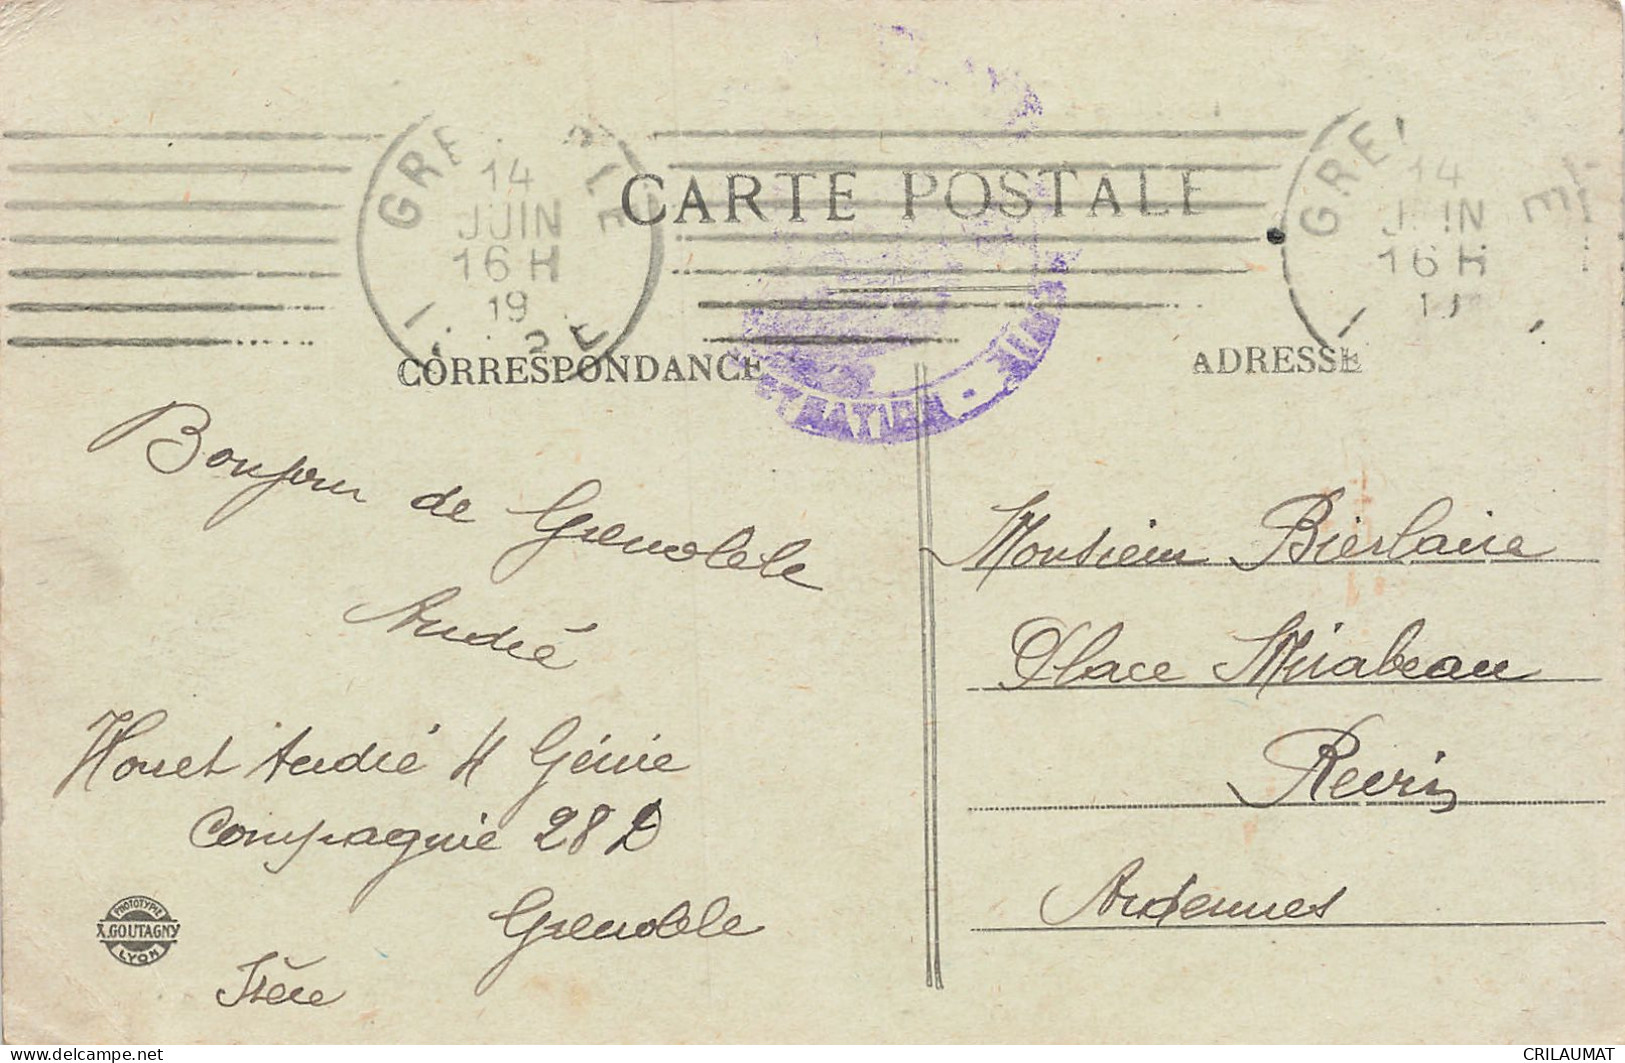 CARTE POSTALE
GRE BLE
14
JUIN
16 H
19
GRE E
14
16 H
CORRESPONDANCE
ADRESSE
Bonjour de Grenoble
André
Houet André 4 Génie
Compagnie 28 D
Grenoble
Isère
Monsieur Bierlaire
Place Mirabeau
Revin
Ardennes
PHOTOTYPIE
A. GOUTAGNY
LYON
delcampe.net
CRILAUMAT